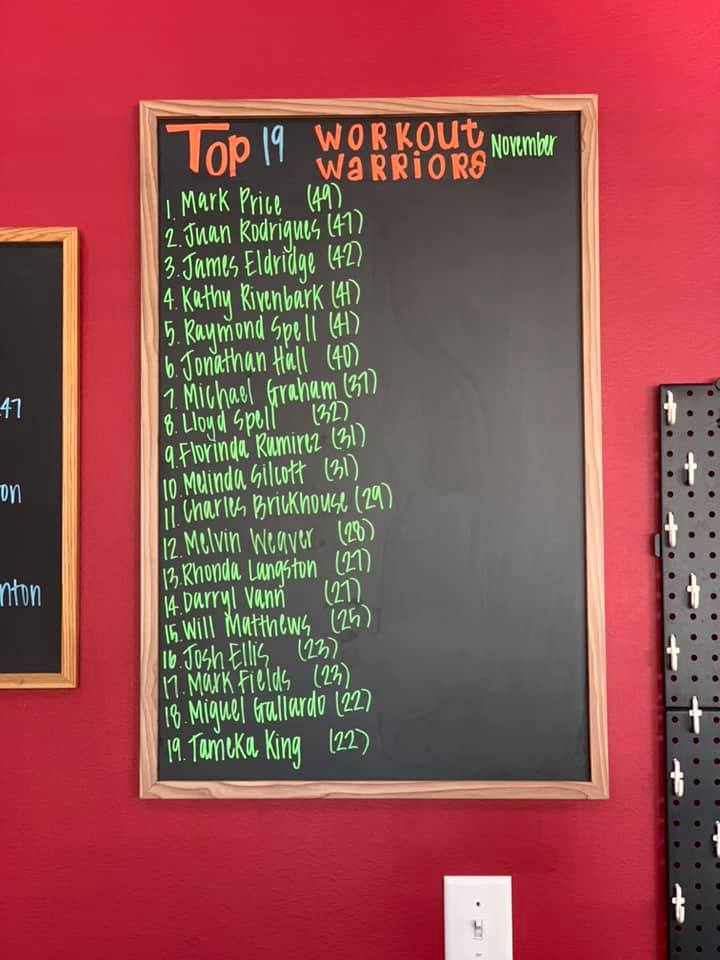 Top 19 WORKOUT WARRIORS November
1. Mark Price (49)
2. Juan Rodrigues (47)
3. James Eldridge (42)
4. Kathy Rivenbark (41)
5. Raymond Spell (41)
6. Jonathan Hall (40)
7. Michael Graham (37)
8. Lloyd Spell (32)
9. Florinda Ramirez (31)
10. Melinda Silcott (31)
11. Charles Brickhouse (29)
12. Melvin Weaver (28)
13. Rhonda Langston (27)
14. Darryl Vann (27)
15. Will Matthews (25)
16. Josh Ellis (23)
17. Mark Fields (23)
18. Miguel Gallardo (22)
19. Tameka King (22)
47
on
nton